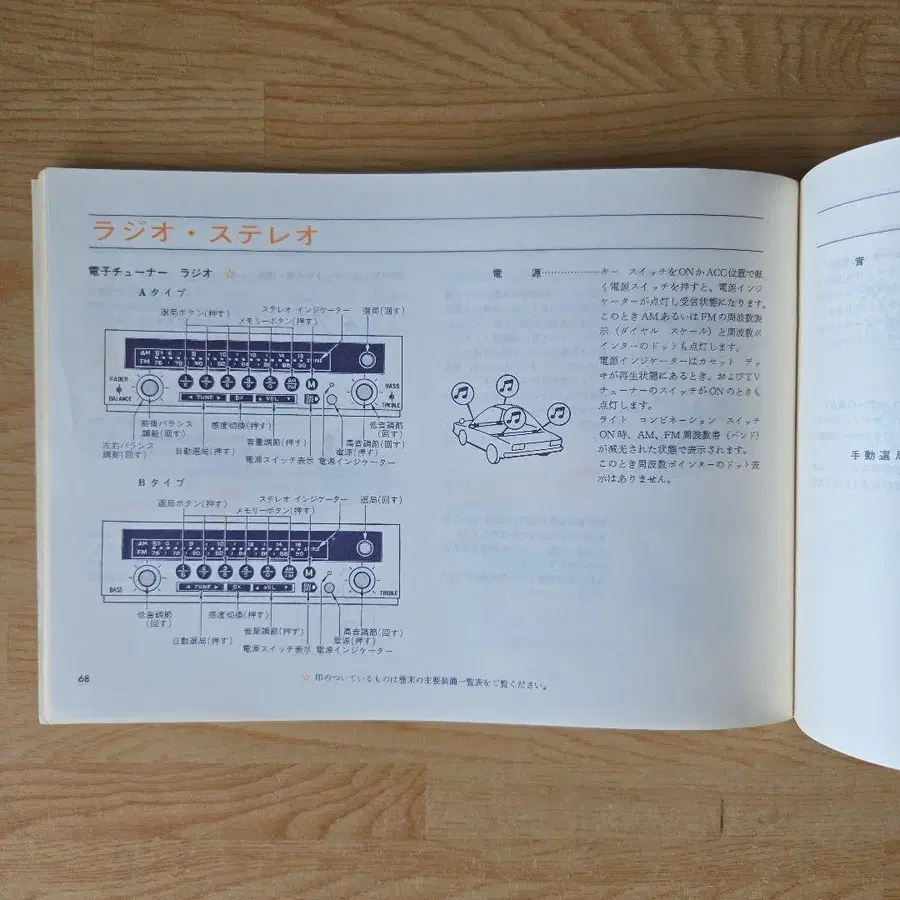 ラジオ・ステレオ
電子チューナー ラジオ ☆
Aタイプ
ステレオ インジケーター
選局ボタン(押す)
メモリーボタン(押す)
選局(回す)
AM
FM 76 78 80 82 84 86 88 90
FADER
BALANCE
BASS
TREBLE
M
◀ TUNE ▶
DX
▲ VOL ▼
前後バランス
調節(回す)
感度切換(押す)
低音調節
(回す)
左右バランス
調節(回す)
自動選局(押す)
音量調節(押す)
高音調節(回す)
電源(押す)
電源スイッチ表示
電源インジケーター
Bタイプ
ステレオ インジケーター
選局ボタン(押す)
メモリーボタン(押す)
選局(回す)
AM
FM 76 78 80 82 84 86 88 90
M
BASS
◀ TUNE ▶
DX
▲ VOL ▼
TREBLE
低音調節
(回す)
感度切換(押す)
自動選局(押す)
音量調節(押す)
高音調節(回す)
電源(押す)
電源スイッチ表示
電源インジケーター
電 源……………キー スイッチをONかACC位置で軽
く電源スイッチを押すと、電源インジ
ケーターが点灯し受信状態になります。
このときAMあるいはFMの周波数表
示(ダイヤル スケール)と周波数ポ
インターのドットも点灯します。
電源インジケーターはカセット デッ
キが再生状態にあるとき、およびTV
チューナーのスイッチがONのときも
点灯します。
ライト コンビネーション スイッチ
ON時、AM、FM周波数帯(バンド)
が減光された状態で表示されます。
このとき周波数ポインターのドット表
示はありません。
☆ 印のついているものは巻末の主要装備一覧表をご覧ください。
68
音
手動選局